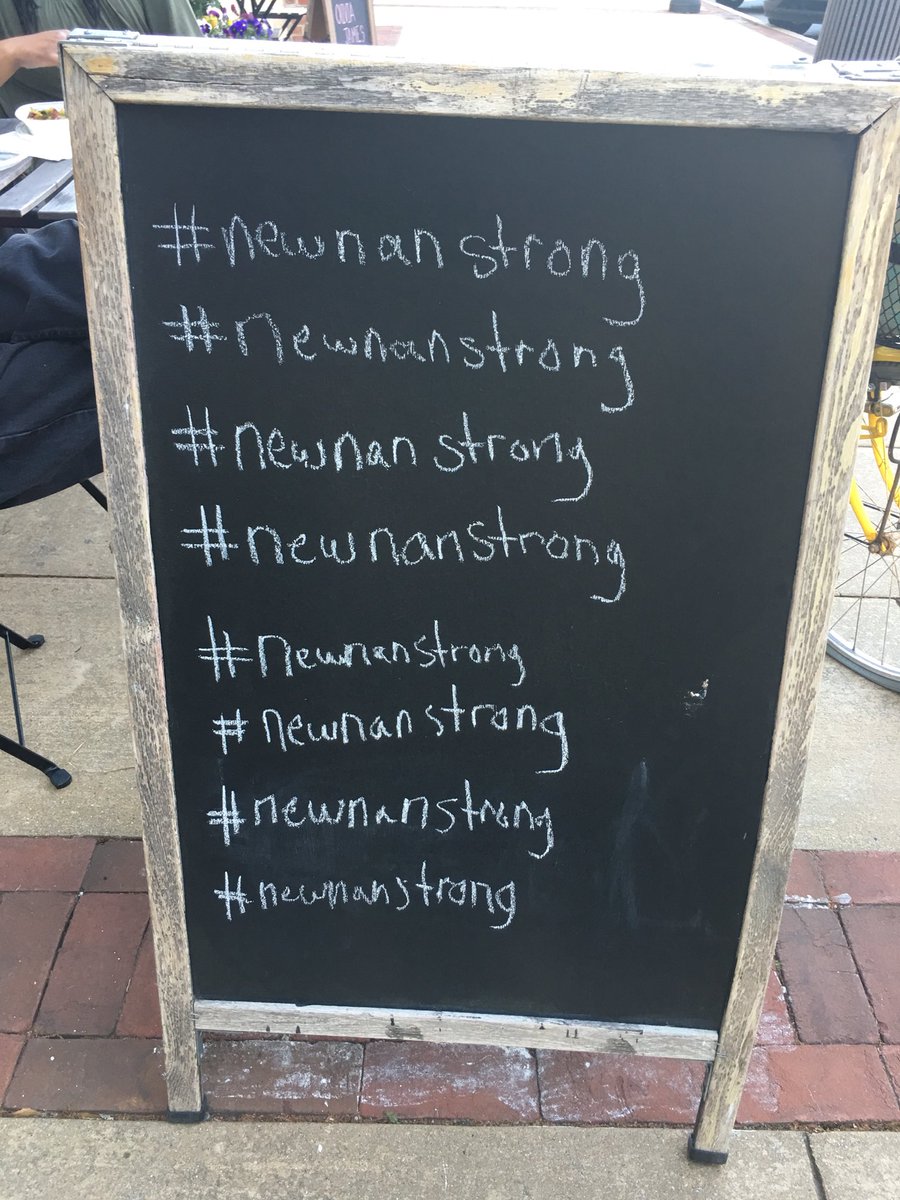 #newnanstrong
#newnanstrong
#newnanstrong
#newnanstrong
#newnanstrong
#newnanstrong
#newnanstrong
#newnanstrong